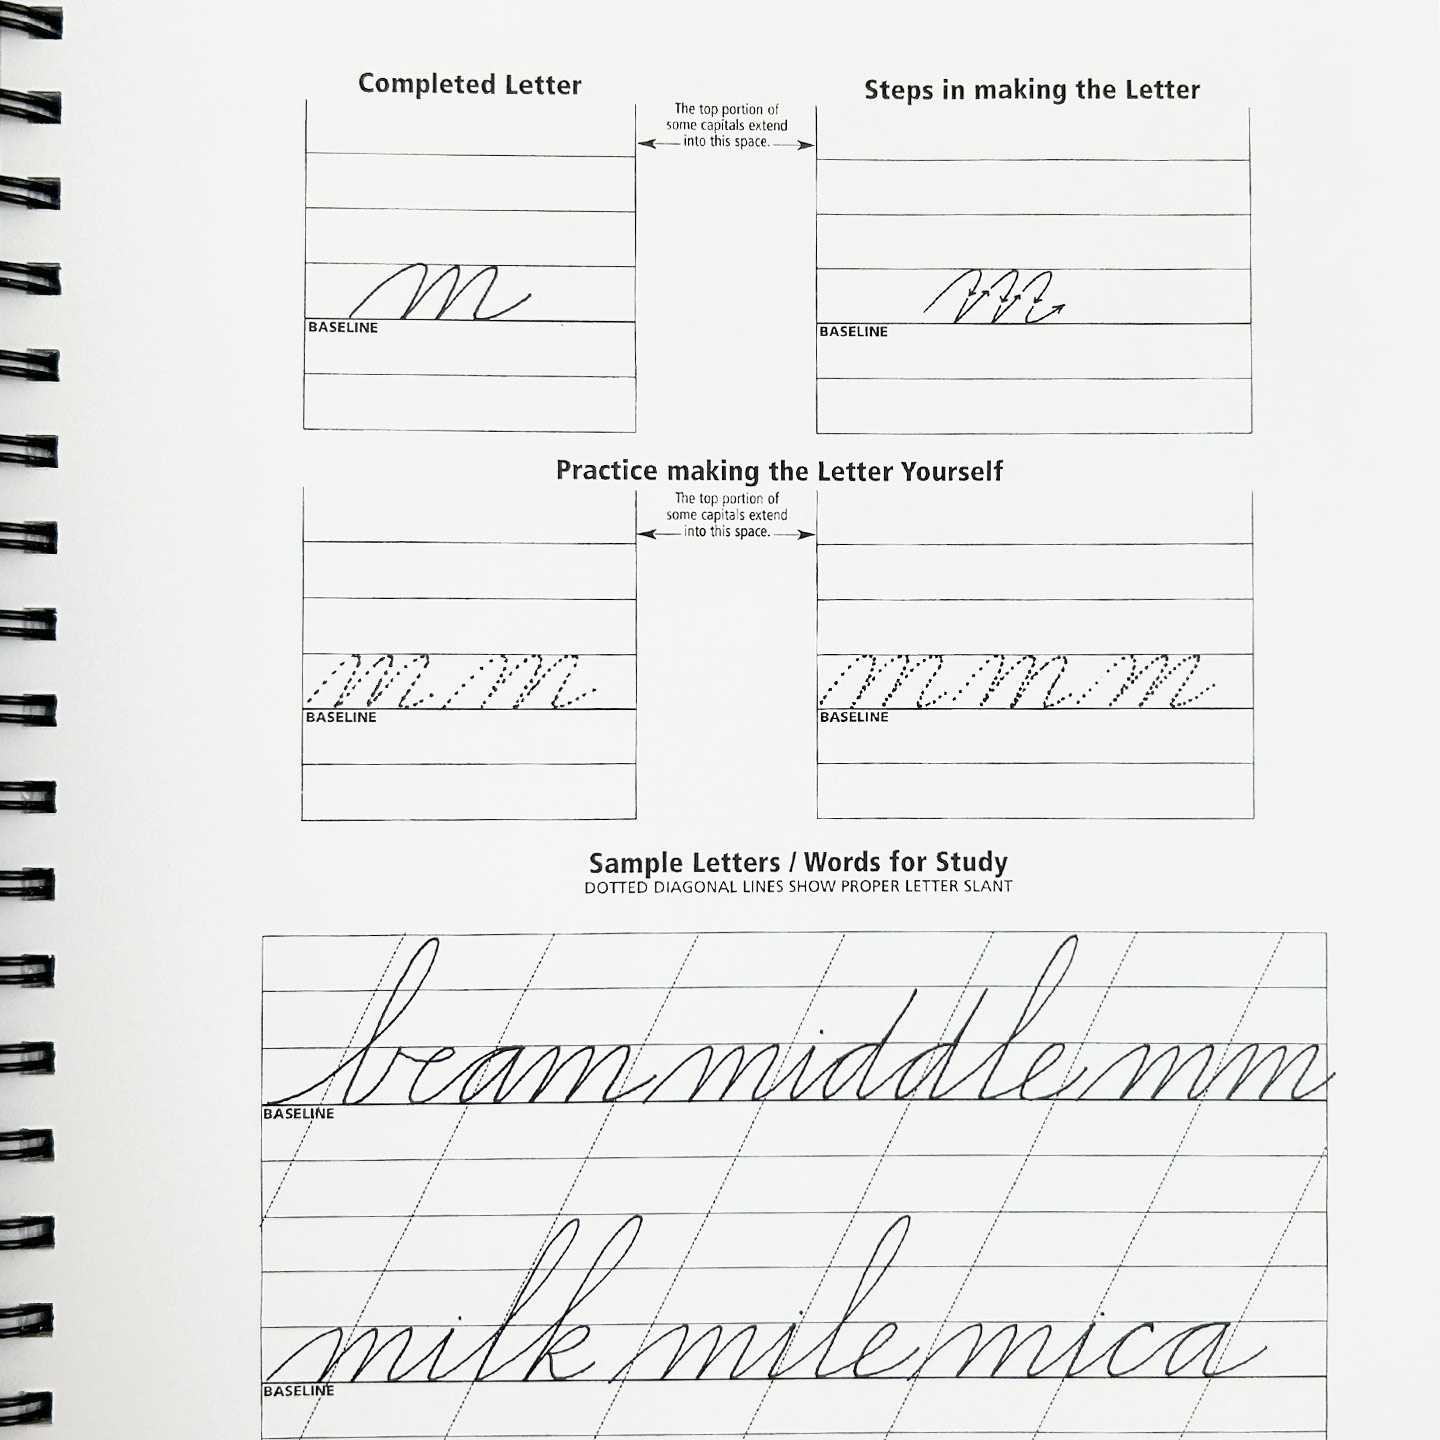 Completed Letter
Steps in making the Letter
The top portion of
some capitals extend
into this space.
m
m
BASELINE
BASELINE
Practice making the Letter Yourself
The top portion of
some capitals extend
into this space.
m m
m m m
BASELINE
BASELINE
Sample Letters / Words for Study
DOTTED DIAGONAL LINES SHOW PROPER LETTER SLANT
beam middle mm
BASELINE
milk mile mica
BASELINE